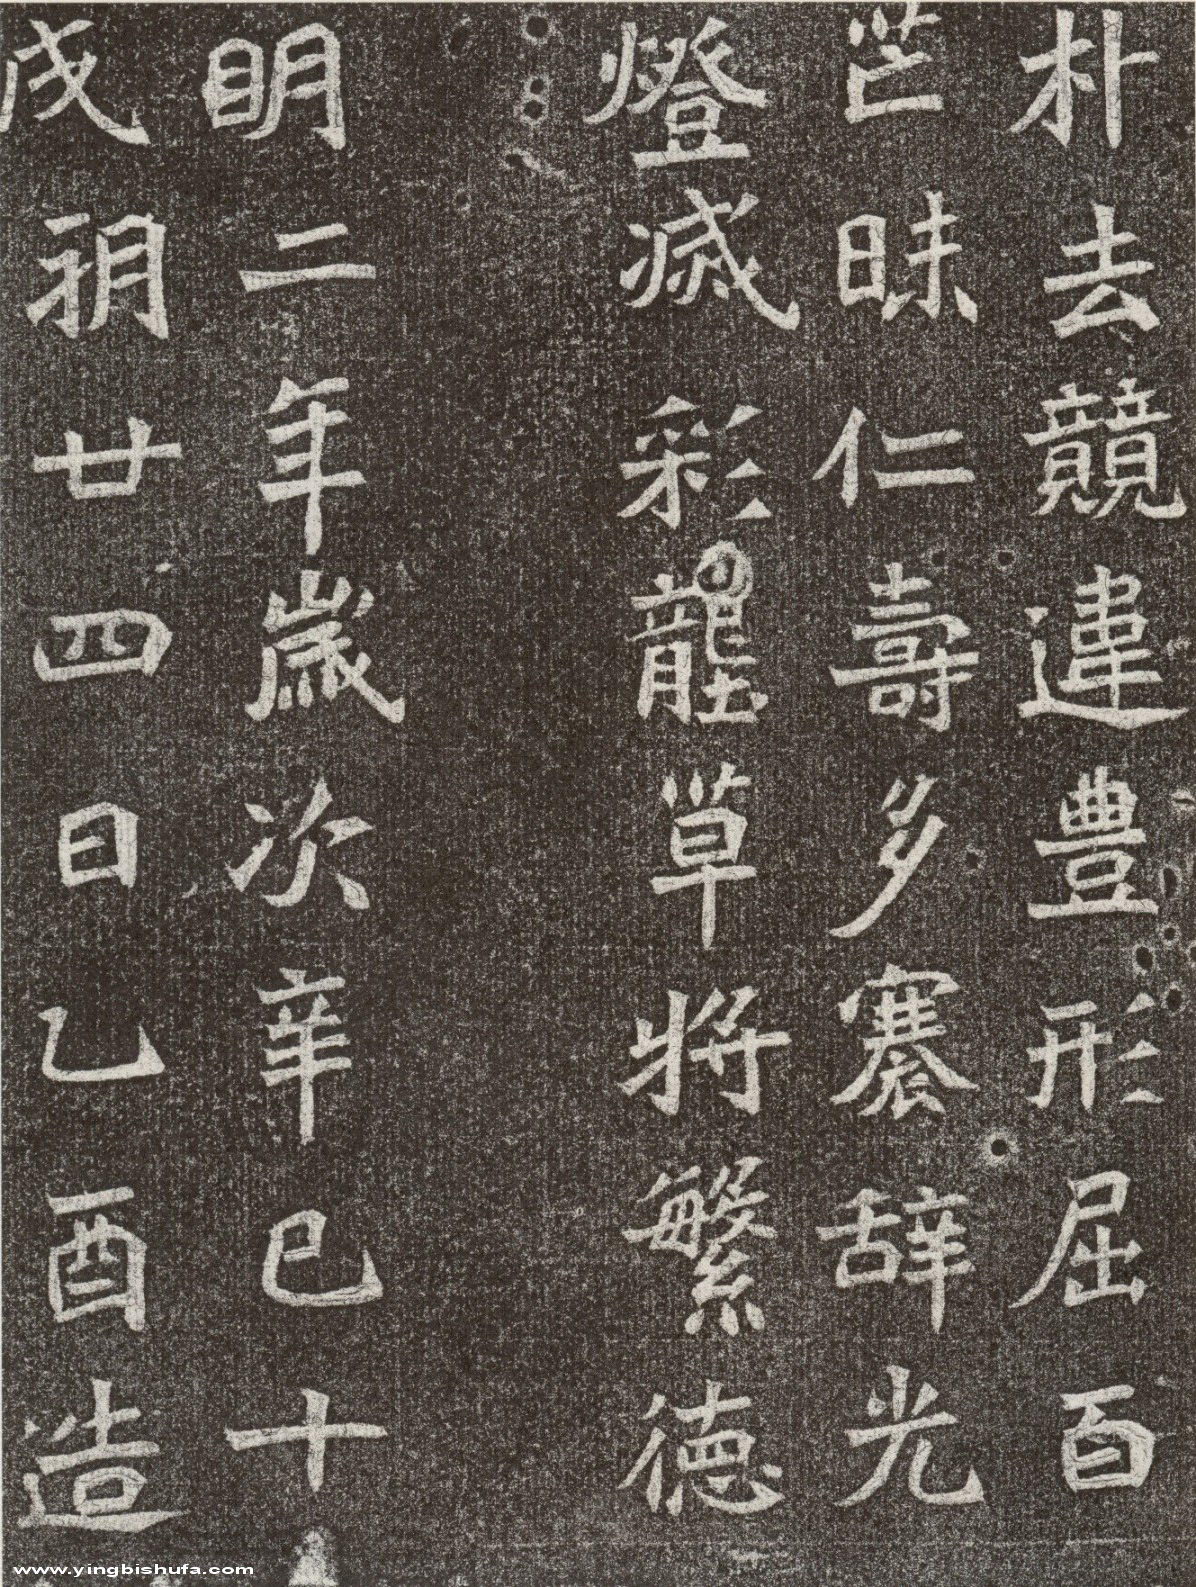 朴去競違豐形屈百
芒昧仁壽多褰辞光
燈滅彩壟草將繁德
明二年歲次辛巳十
戌朔廿四日乙酉造
www.yingbishufa.com